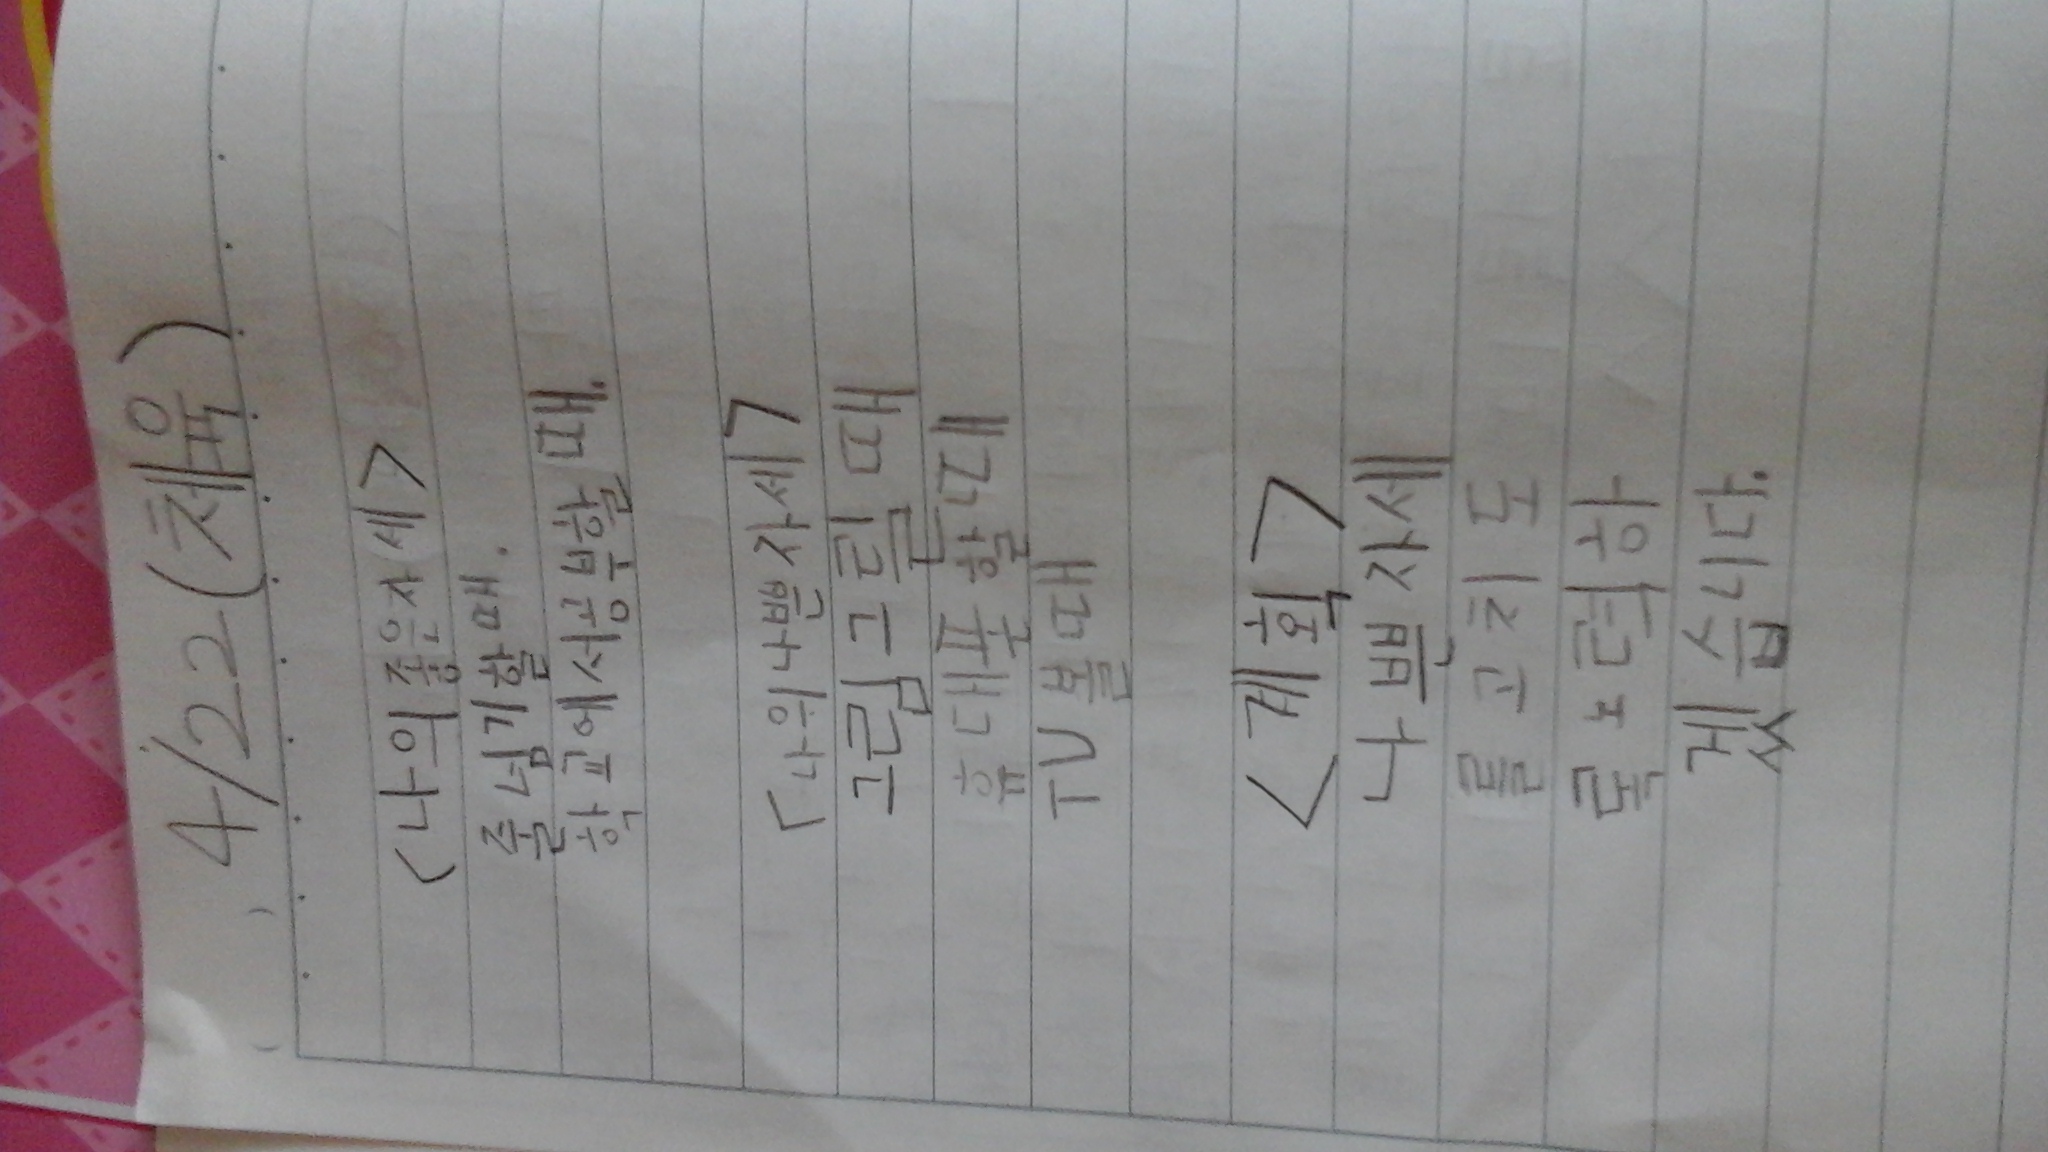 4/22 (체육)
<나의 좋은 자세>
줄넘기할 때.
학교에서 공부할 때.
「나위 나쁜 자세>
그림 그릴 때
휴대폰 할 때
TV 볼 때
<계획>
나쁜 자세
를 고치도
록 노력하
겠습니다.